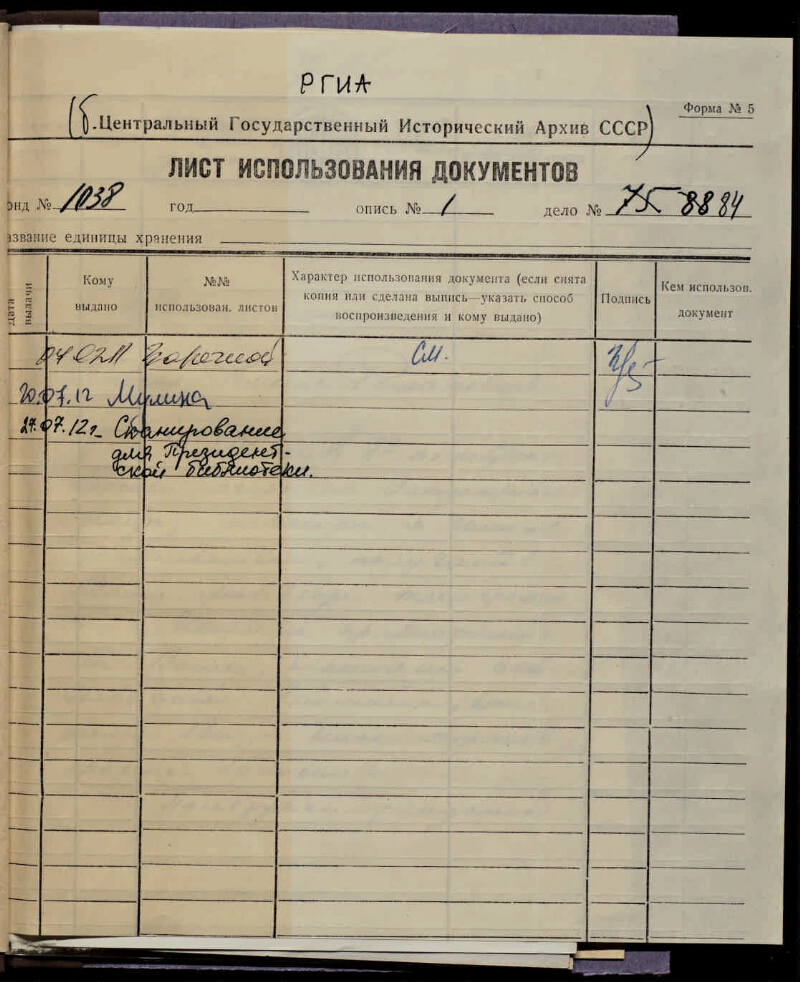 РГИА
(б. Центральный Государственный Исторический Архив СССР)
Форма № 5
ЛИСТ ИСПОЛЬЗОВАНИЯ ДОКУМЕНТОВ
онд № 1038 год опись № 1 дело № 75 88 84
азвание единицы хранения
Дата выдачи
Кому выдано
№№ использован. листов
Характер использования документа (если снята
копия или сделана выпись—указать способ
воспроизведения и кому выдано)
Подпись
Кем использов. документ
см.
20.07.12 Мулина
27.07.12г. Сканирование
для Президент-
ской библиотеки.